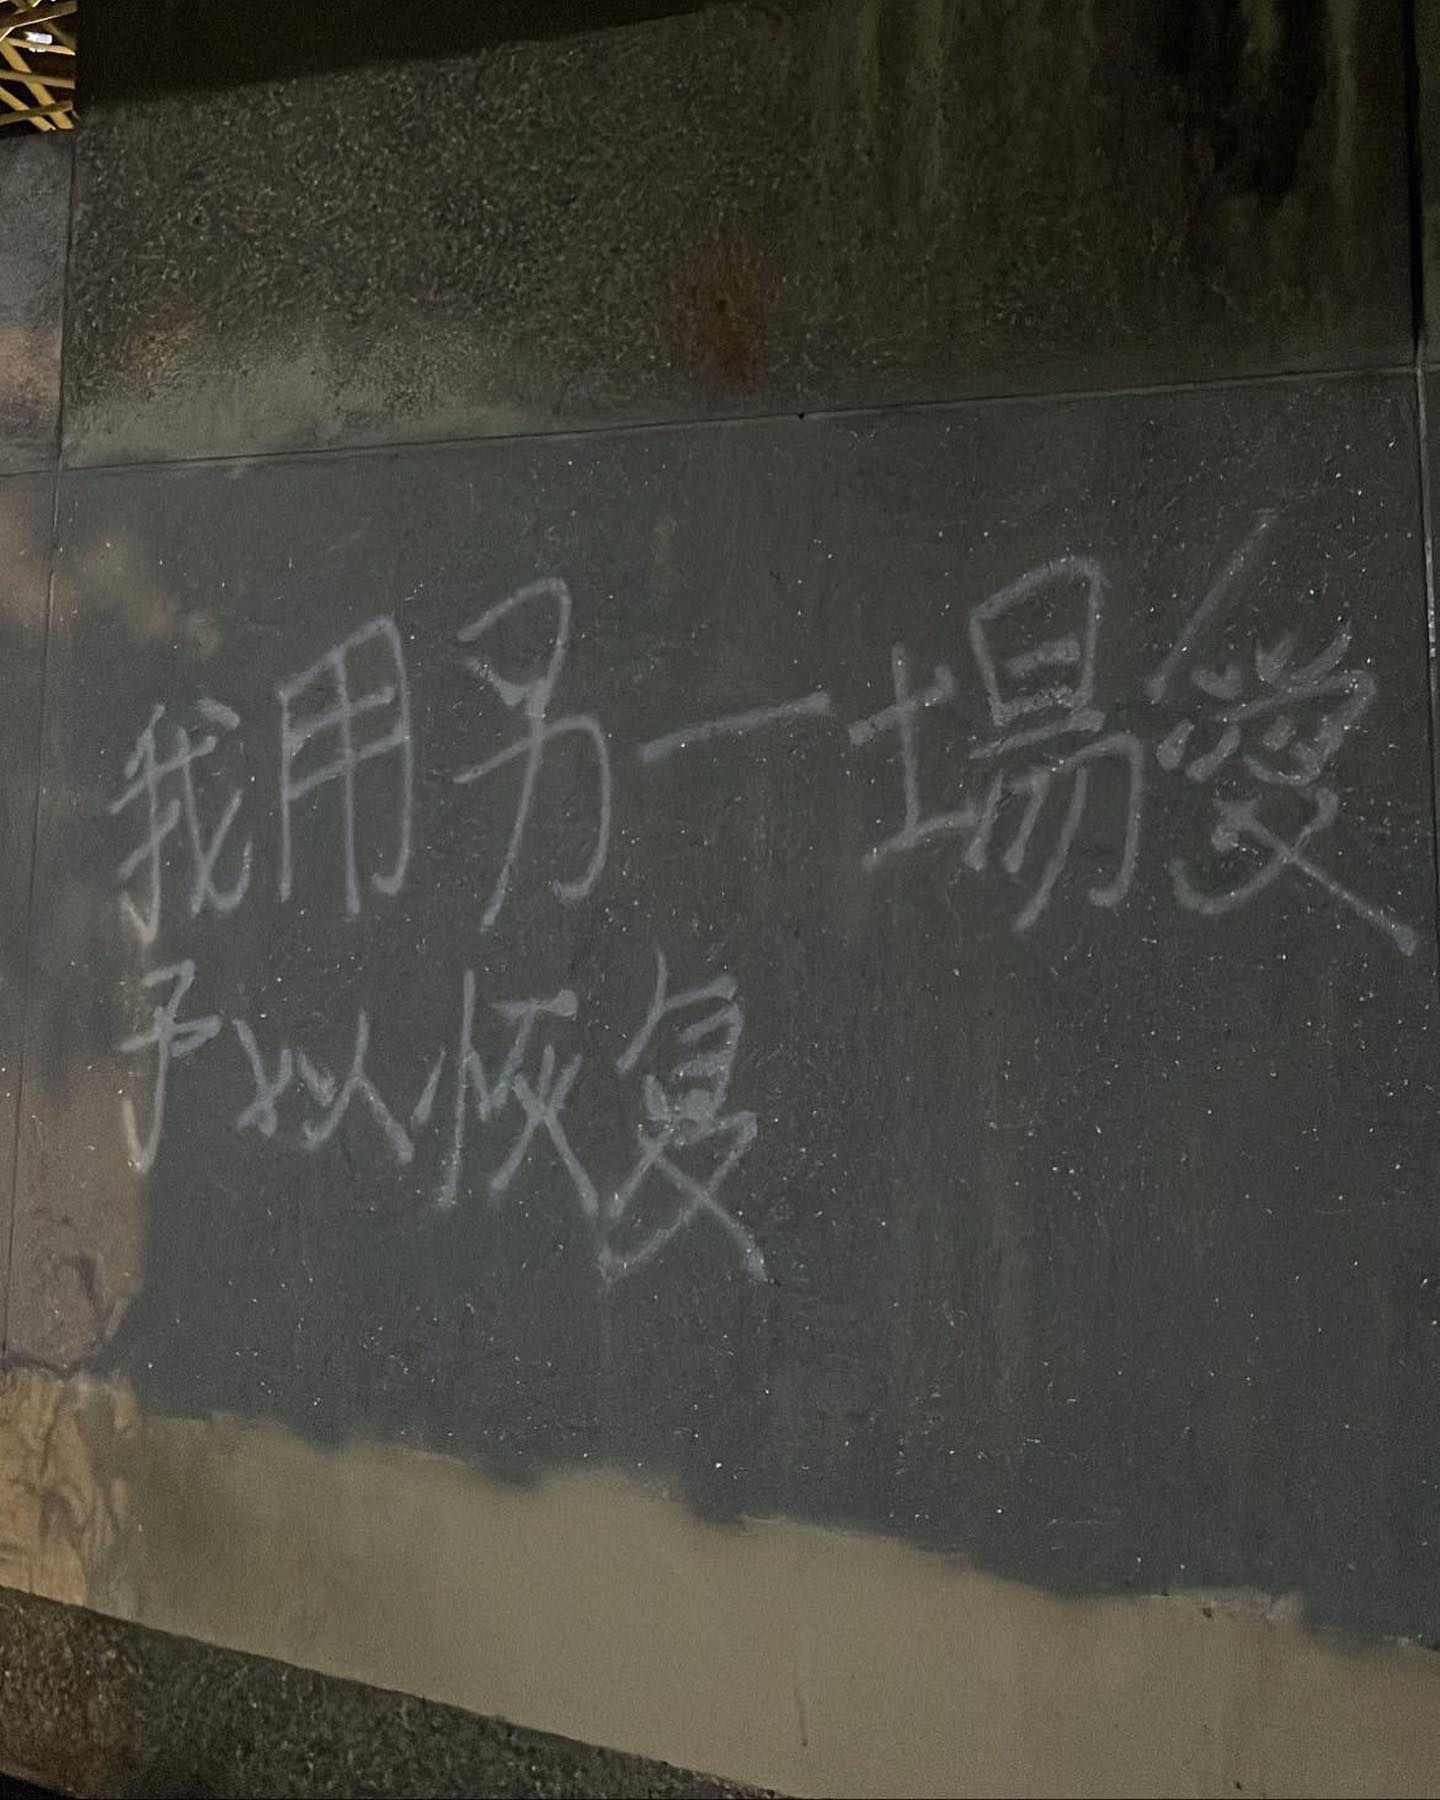 我用另一場愛
予以恢复